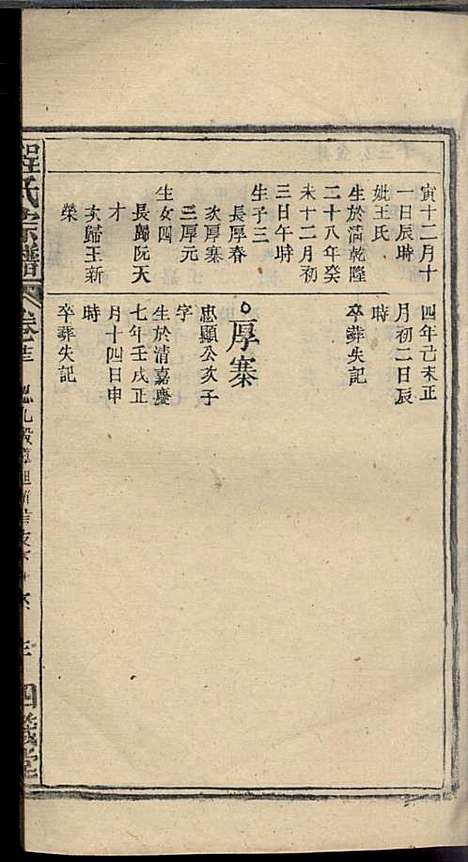 寅十二月十
一日辰時
妣王氏
生於清乾隆
二十八年癸
未十二月初
三日午時
生子三
長厚春
次厚寨
三厚元
生女四
長歸阮天
才
次歸王新
榮
四年己未正
月初二日辰
時
卒葬失記
厚寨
忠顯公次子
字
生於清嘉慶
七年壬戌正
月十四日申
時
卒葬失記
程氏宗譜
卷